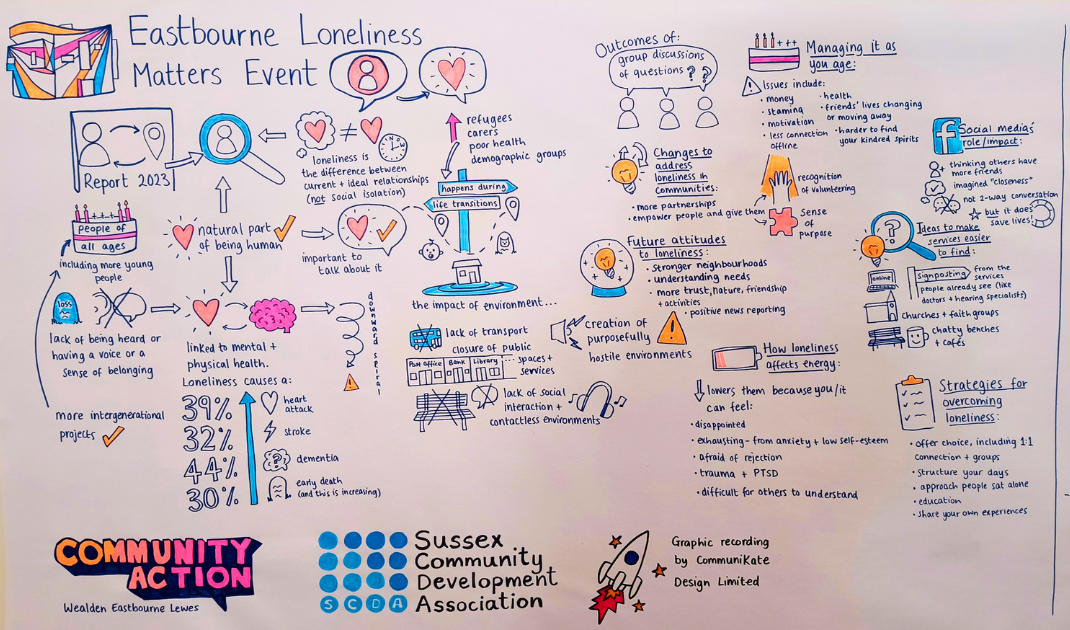 Eastbourne Loneliness
Matters Event
Report 2023
loneliness is
the difference between
current + ideal relationships
(not social isolation)
refugees
carers
poor health
demographic groups
happens during
life transitions
people of
all ages
including more young
people
natural part
of being human
important to
talk about it
loss
lack of being heard or
having a voice or a
sense of belonging
linked to mental +
physical health.
downward spiral
more intergenerational
projects
Loneliness causes a:
39% heart
attack
32% stroke
44% dementia
30% early death
(and this is increasing)
the impact of environment...
lack of transport
closure of public
spaces +
services
Post Office
Bank
Library
lack of social
interaction +
contactless environments
creation of
purposefully
hostile environments
Outcomes of:
group discussions
of questions ? ?
Changes to
address
loneliness in
communities:
• more partnerships
• empower people and give them
recognition
of volunteering
Sense
of
purpose
Future attitudes
to loneliness:
• stronger neighbourhoods
• understanding needs
• more trust, nature, friendship
+ activities
• positive news reporting
Managing it as
you age:
Issues include:
• money
• stamina
• motivation
• less connection
offline
• health
• friends' lives changing
or moving away
• harder to find
your kindred spirits
Social medias'
role/impact:
thinking others have
more friends
imagined "closeness"
not 2-way conversation
but it does
save lives!
Ideas to make
services easier
to find:
online
Signposting
from the
services
people already see (like
doctors + hearing specialists)
churches + faith groups
chatty benches
+ cafés
How loneliness
affects energy:
lowers them because you/it
can feel:
• disappointed
• exhausting - from anxiety + low self-esteem
• afraid of rejection
• trauma + PTSD
• difficult for others to understand
Strategies for
overcoming
loneliness:
• offer choice, including 1:1
connection + groups
• structure your days
• approach people sat alone
• education
• share your own experiences
COMMUNITY
ACTION
Wealden Eastbourne Lewes
SCDA
Sussex
Community
Development
Association
Graphic recording
by CommuniKate
Design Limited